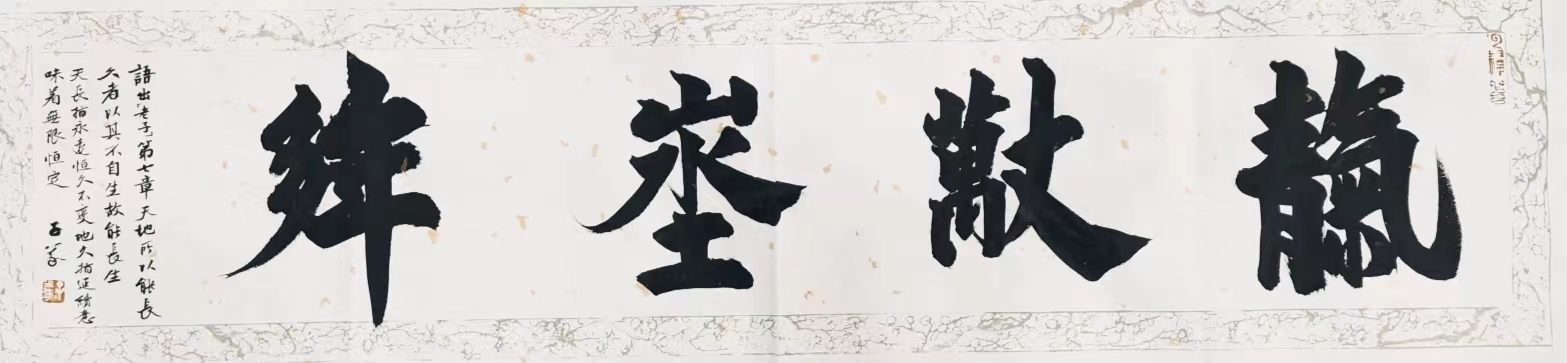 靝 埊
語出「老子」第七章天地所以能長
久者以其不自生故能長生
天長指永遠恒久不變地久指延續意
味着無限恒定